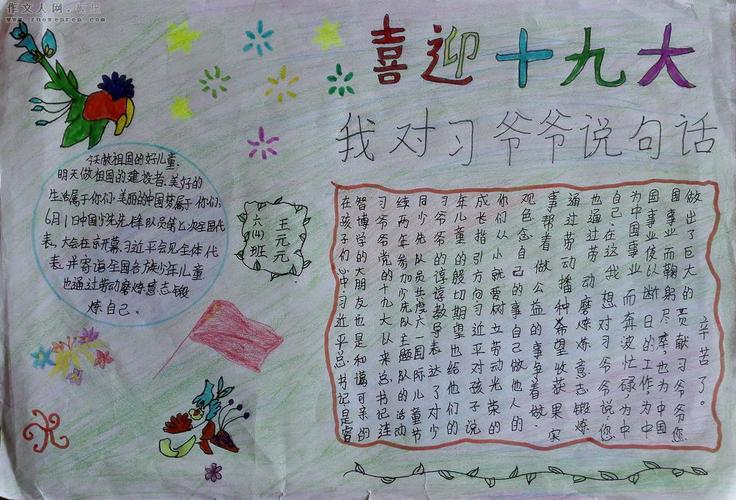 作文人网
www.zuowenren.com
喜迎十九大
我对习爷爷说句话
今天做祖国的好儿童,
明天做祖国的建设者,美好的
生活属于你们,美丽的中国梦属于你们,
6月1日中国少先先锋队员第七次全国代
表,大会在京开幕习近平会见全体代
表,并寄语全国各族少年儿童
也通过劳动磨炼意志锻
炼自己。
六(4)班
王元元
在孩子们心中,习近平总书记是睿
智博学的大朋友也是和蔼可亲的
习爷爷党的十九大以来总书记连
续两年参加少先队主题队的活动
同少先队员共度六一国际儿童节
习爷爷的谆谆教导表达了对少
年儿童的殷切期望也给他们的
成长指引方向习近平对孩子说
你们从小就要树立劳动光荣的
观念自己的事自己做他人的
事帮着做公益的事争着做.
通过劳动播种希望收获果实
也通过劳动磨炼意志锻炼
自己在这我想对习爷爷说,您
为中国事业而奔波忙碌,为中
国事业使以断日的工作,为中
国事业而鞠躬尽瘁,也为中国
做出了巨大的贡献习爷爷您
辛苦了。